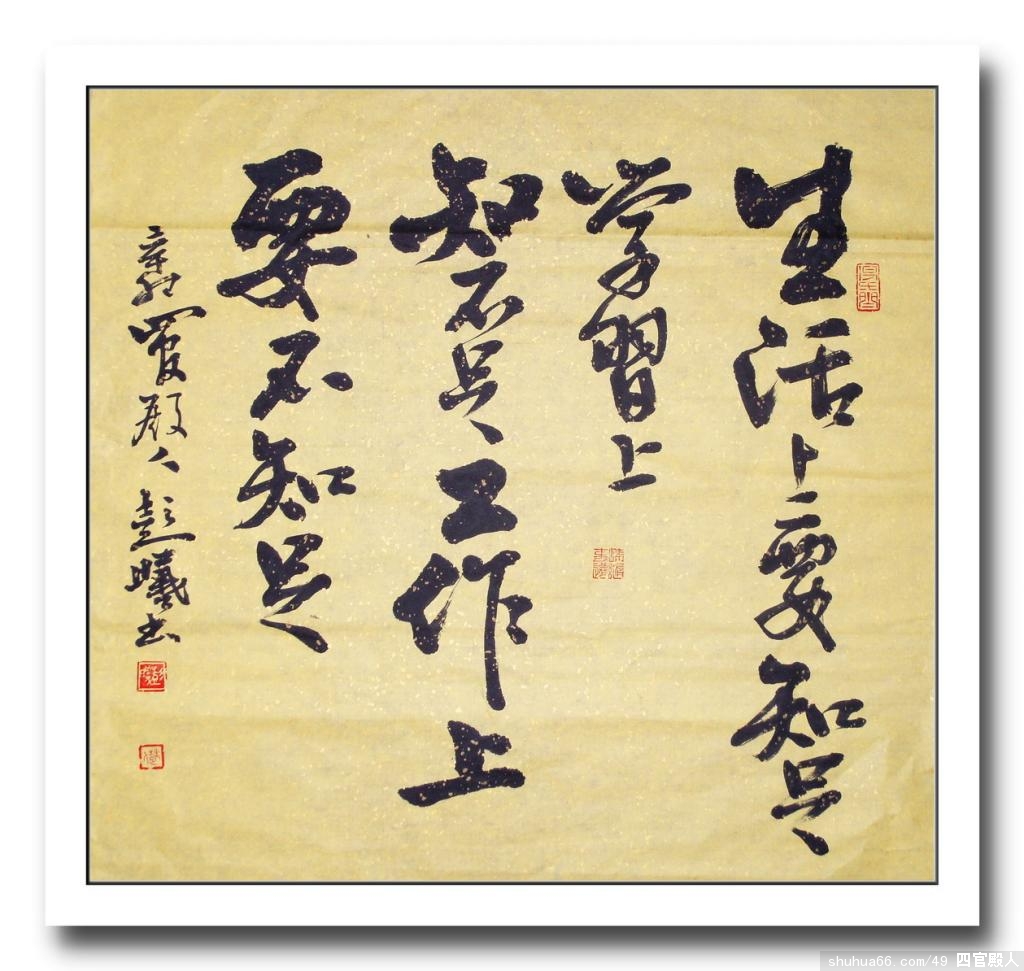 生活上要知足
学習上
知不足工作上
要不知足
辛卯四官殿人彭曦书
shuhua66.com/49 四官殿人